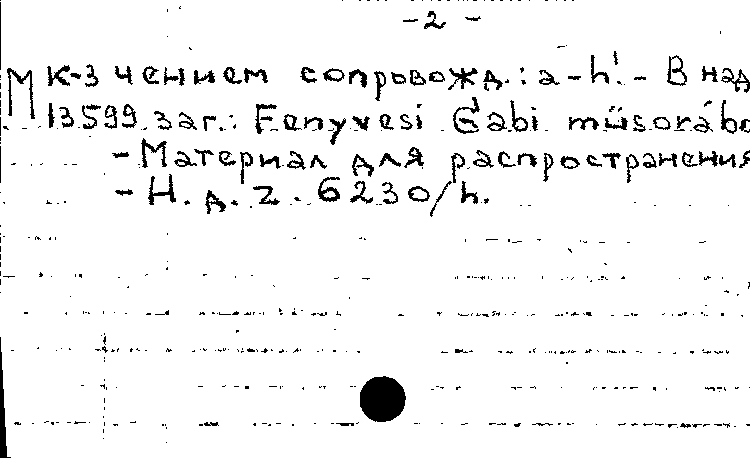 - 2 -
М К-3 чением сопровожд.: a-h! - В над
13599 заг.: Fenyvesi Gabi müsorábo
- Материал для распространения
- Н. д. Z. 6230/h.